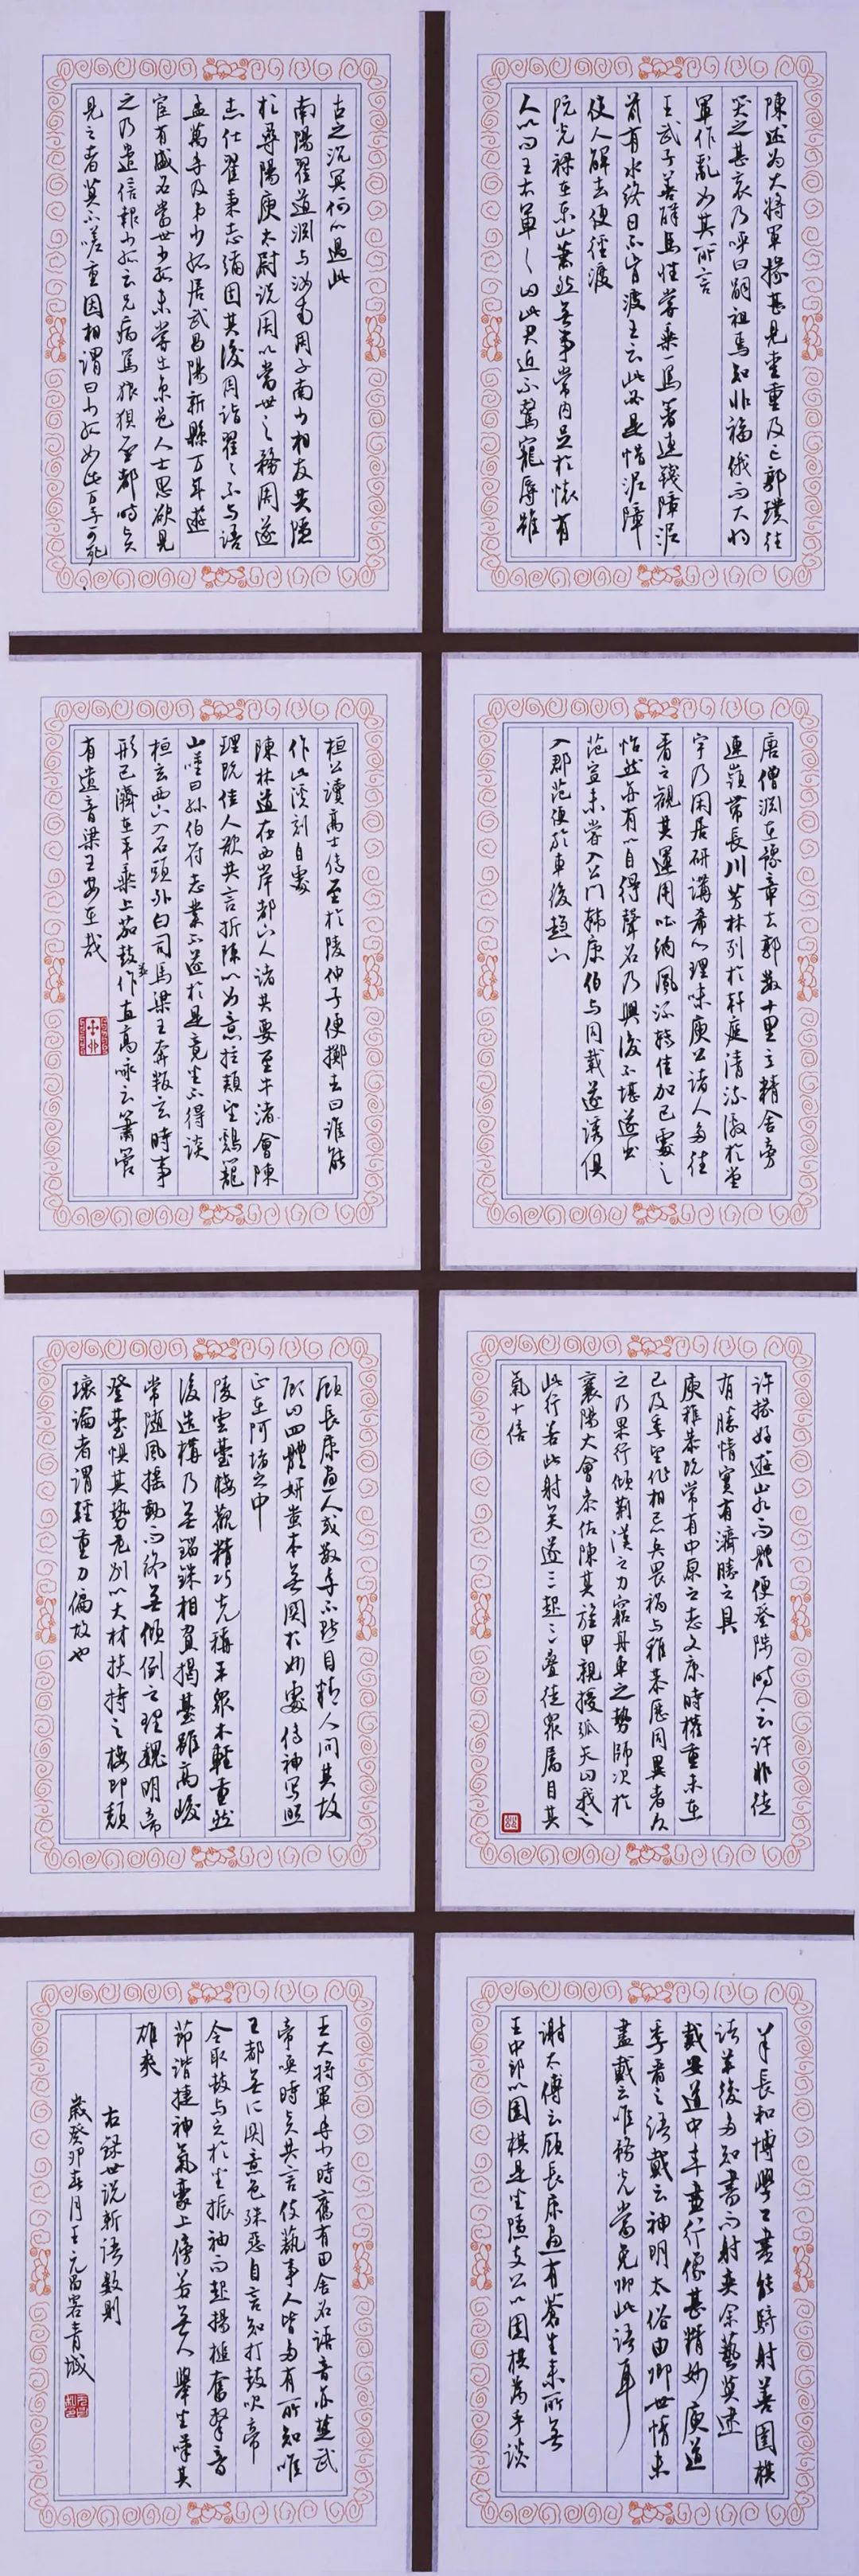 陳述為大將軍掾甚見愛重及亡郭璞往
哭之甚哀乃呼曰嗣祖焉知非福俄而大將
軍作亂如其所言
王武子善解馬性嘗乘一馬著連錢障泥
前有水終日不肯渡王云此必是惜泥障
使人解去便徑渡
阮光祿在東山蕭然無事常內足於懷有
人以問王右軍々曰此君近不驚寵辱雖
古之沉冥何以過此
南陽翟道淵与汝南周子南少相友共隱
於尋陽庾太尉說周以當世之務周遂
志仕翟秉志彌固其後周詣翟々不与語
孟萬年及弟少孤居武昌陽新縣万年遊
宦有盛名當世少孤未嘗出京邑人士思欲見
之乃遣信報少孤云兄病篤狼狽至都時賢
見之者莫不嗟重因相謂曰少孤如此万年可死
唐僧淵在豫章去郭數十里立精舍旁
連嶺帶長川芳林列於軒庭清流激於堂
宇乃閑居研講希心理味庾公諸人多往
看之觀其運用吐納風流轉佳加已處之
怡然亦有以自得聲名乃興後不堪遂出
范宣未嘗入公門韓康伯与同載遂誘俱
入郡范便於車後趨下
桓公讀高士傳至於陵仲子便擲去曰誰能
作此溪刻自處
陳林道在西岸都下人諸共要至牛渚會陳
理既佳人欲共言折陳以如意拄頰望鷄籠
山嘆曰孫伯符志業不遂於是竟坐不得談
桓玄西下入石頭外白司馬梁王奔叛玄時事
形已濟在平乘上茄鼓並作直高咏云簫管
有遺音梁王安在哉
許掾好遊山水而體便登陟時人云許非徒
有勝情實有濟勝之具
庾稚恭既常有中原之志文康時權重未在
己及季堅作相忌兵畏禍与稚恭歷同異者久
之乃果行傾荊漢之力窮舟車之勢師次於
襄陽大會參佐陳其旌甲親援弧矢曰我之
此行若此射矣遂三起三疊徒眾屬目其
氣十倍
顧長康畫人或數年不點目精人問其故
顧曰四體妍蚩本無關於妙處傳神寫照
正在阿堵之中
陵雲臺樓觀精巧先稱平眾木輕重然
後造構乃無錙銖相負揭臺雖高峻
常隨風搖動而終無傾倒之理魏明帝
登臺懼其勢危別以大材扶持之樓即頹
壞論者謂輕重力偏故也
羊長和博學工書能騎射善圍棋
諸羊後多知書而射奕余藝莫逮
戴安道中年畫行像甚精妙庾道
季看之語戴云神明太俗由卿世情未
盡戴云唯務光當免卿此語耳
謝太傅云顧長康畫有蒼生來所無
王中郎以圍棋是坐隱支公以圍棋為手談
王大將軍年少時舊有田舍名語音亦楚武
帝喚時賢共言伎藝事人皆多有所知唯
王都無所關意色殊惡自言知打鼓吹帝
令取鼓与之於坐振袖而起揚槌奮擊音
節諧捷神氣豪上傍若無人舉坐嘆其
雄爽
右錄世說新語數則
歲癸卯春月王元昌客青城